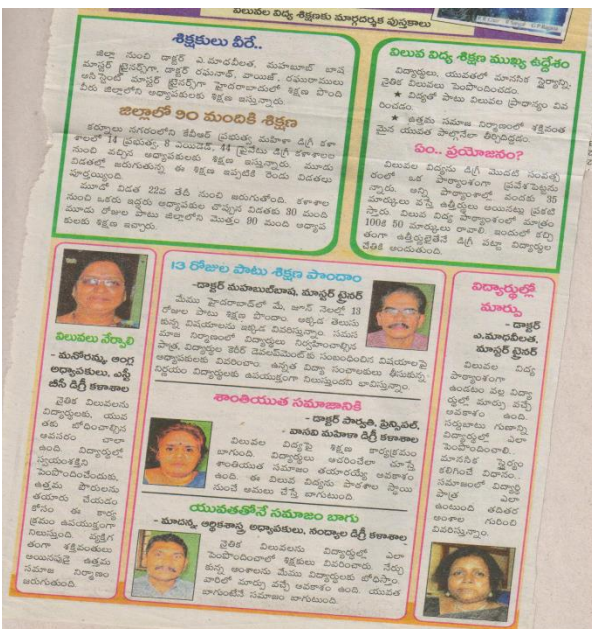 విలువల విద్య శిక్షణకు మార్గదర్శక పుస్తకాలు
శిక్షకులు వీరే..
జిల్లా నుంచి డాక్టర్ ఎ.మాధవీలత, మహబూబ్ బాష
మాస్టర్ ట్రైనర్స్‌గా, డాక్టర్ రఘునాథ్, వాయిజ్, రఘురాములు
అసిస్టెంట్ మాస్టర్ ట్రైనర్స్‌గా హైదరాబాదులో శిక్షణ పొంది
వీరు జిల్లాలోని అధ్యాపకులకు శిక్షణ ఇస్తున్నారు.
జిల్లాలో 90 మందికి శిక్షణ
కర్నూలు నగరంలోని కేవీఆర్ ప్రభుత్వ మహిళా డిగ్రీ కళా
శాలలో 14 ప్రభుత్వ, 8 ఎయిడెడ్, 44 ప్రైవేటు డిగ్రీ కళాశాలల
నుంచి వచ్చిన అధ్యాపకులకు శిక్షణ ఇస్తున్నారు. మూడు
విడతల్లో జరుగుతున్న ఈ శిక్షణ ఇప్పటికి రెండు విడతలు
పూర్తయ్యింది.
మూడో విడత 22వ తేదీ నుంచి జరుగుతోంది. కళాశాల
నుంచి ఒకరు ఇద్దరు అధ్యాపకుల చొప్పున విడతకు 30 మంది
మూడు రోజుల పాటు జిల్లాలోని మొత్తం 90 మంది అధ్యాప
కులకు శిక్షణ ఇచ్చారు.
విలువ విద్య శిక్షణ ముఖ్య ఉద్దేశం
విద్యార్థులు, యువతలో మానసిక స్థైర్యాన్ని,
నైతిక విలువలు పెంపొందించడం.
★ విద్యతో పాటు విలువల ప్రాధాన్యం వివ
రించడం.
★ ఉత్తమ సమాజ నిర్మాణంలో శక్తివంత
మైన యువత పాల్గొనేలా తీర్చిదిద్దడం.
ఏం.. ప్రయోజనం?
విలువల విద్యను డిగ్రీ మొదటి సంవత్స
రంలో ఒక పాఠ్యాంశంగా ప్రవేశపెట్టను
న్నారు. అన్ని పాఠ్యాంశాల్లో వందకు 35
మార్కులు వస్తే ఉత్తీర్ణులు అయినట్లు ప్రకటి
స్తారు. విలువ విద్య పాఠ్యాంశంలో మాత్రం
100కి 50 మార్కులు రావాలి. ఇందులో కచ్చి
తంగా ఉత్తీర్ణులైతేనే డిగ్రీ పట్టా విద్యార్థుల
చేతికి అందుతుంది.
విలువలు నేర్పాలి
- మనోరమ్మ, ఆంగ్ల
అధ్యాపకులు, ఎస్టీ
బీసీ డిగ్రీ కళాశాల
నైతిక విలువలను
విద్యార్థులకు, యువ
తకు బోధించాల్సిన
అవసరం చాలా
ఉంది. విద్యార్థుల్లో
స్వయంశక్తిని
పెంపొందించేందుకు,
ఉత్తమ పౌరులను
తయారు చేయడం
కోసం ఈ కార్య
క్రమం ఉపయుక్తంగా
నిలుస్తుంది. వ్యక్తిగ
తంగా శక్తివంతులు
అయినపుడే ఉత్తమ
సమాజ నిర్మాణం
జరుగుతుంది.
13 రోజుల పాటు శిక్షణ పొందాం
-డాక్టర్ మహబుబ్‌బాష, మాస్టర్ ట్రైనర్
మేము హైదరాబాద్‌లో మే, జూన్ నెలల్లో 13
రోజుల పాటు శిక్షణ పొందాం. అక్కడ తెలుసు
కున్న విషయాలను ఇక్కడ వివరిస్తున్నాం. సమస
మాజ నిర్మాణంలో విద్యార్థులు నిర్వహించాల్సిన
పాత్ర, విద్యార్థుల కెరీర్ డెవలప్‌మెంట్‌కు సంబంధించిన విషయాలపై
అధ్యాపకులకు వివరించాం. ఉన్నత విద్యా సంచాలకులు తీసుకున్న
నిర్ణయం విద్యార్థులకు ఉపయుక్తంగా నిలుస్తుందని భావిస్తున్నాం.
శాంతియుత సమాజానికి
- డాక్టర్ పార్వతి, ప్రిన్సిపల్,
- వాసవి మహిళా డిగ్రీ కళాశాల
విలువల విద్యపై శిక్షణ కార్యక్రమం
బాగుంది. విద్యార్థులు ఆచరించేలా చూస్తే
శాంతియుత సమాజం తయారయ్యే అవకాశం
ఉంది. ఈ విలువ విద్యను పాఠశాల స్థాయి
నుంచే అమలు చేస్తే బాగుటుంది
యువతతోనే సమాజం బాగు
- మాదన్న, ఆర్థికశాస్త్ర అధ్యాపకులు, నంద్యాల డిగ్రీ కళాశాల
నైతిక విలువలను విద్యార్థుల్లో ఎలా
పెంపొందించాలో శిక్షకులు వివరించారు. నేర్చు
కున్న అంశాలను మేము విద్యార్థులకు బోధిస్తాం.
వారిలో మార్పు వచ్చే అవకాశం ఉంది. యువత
బాగుంటేనే సమాజం బాగుటుంది.
విద్యార్థుల్లో
మార్పు
- డాక్టర్
ఎ.మాధవీలత,
మాస్టర్ ట్రైనర్
విలువల విద్య
పాఠ్యాంశంగా
ఉండటం వల్ల విద్యా
ర్థుల్లో మార్పు వచ్చే
అవకాశం ఉంది.
సర్దుబాటు గుణాన్ని
విద్యార్థుల్లో ఎలా
పెంపొందించాలి..
మానసిక స్థైర్యం
కలిగించే విధానం..
సమాజంలో విద్యార్థి
పాత్ర ఎలా
ఉంటుంది తదితర
అంశాల గురించి
వివరిస్తున్నాం.